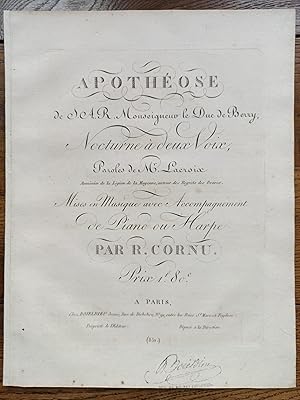 APOTHÉOSE
de S.A.R. Monseigneur le Duc de Berry,
Nocturne à deux Voix,
Paroles de Mr. Lacroix
Mises en Musique avec Accompagnement
de Piano ou Harpe
PAR R. CORNU.
Prix 1f. 80c.
A PARIS,
Chez BOIELDIEU Jeune, Rue de Richelieu,
Propriété de l'Editeur. Déposé à la Direction.
Boieldieu